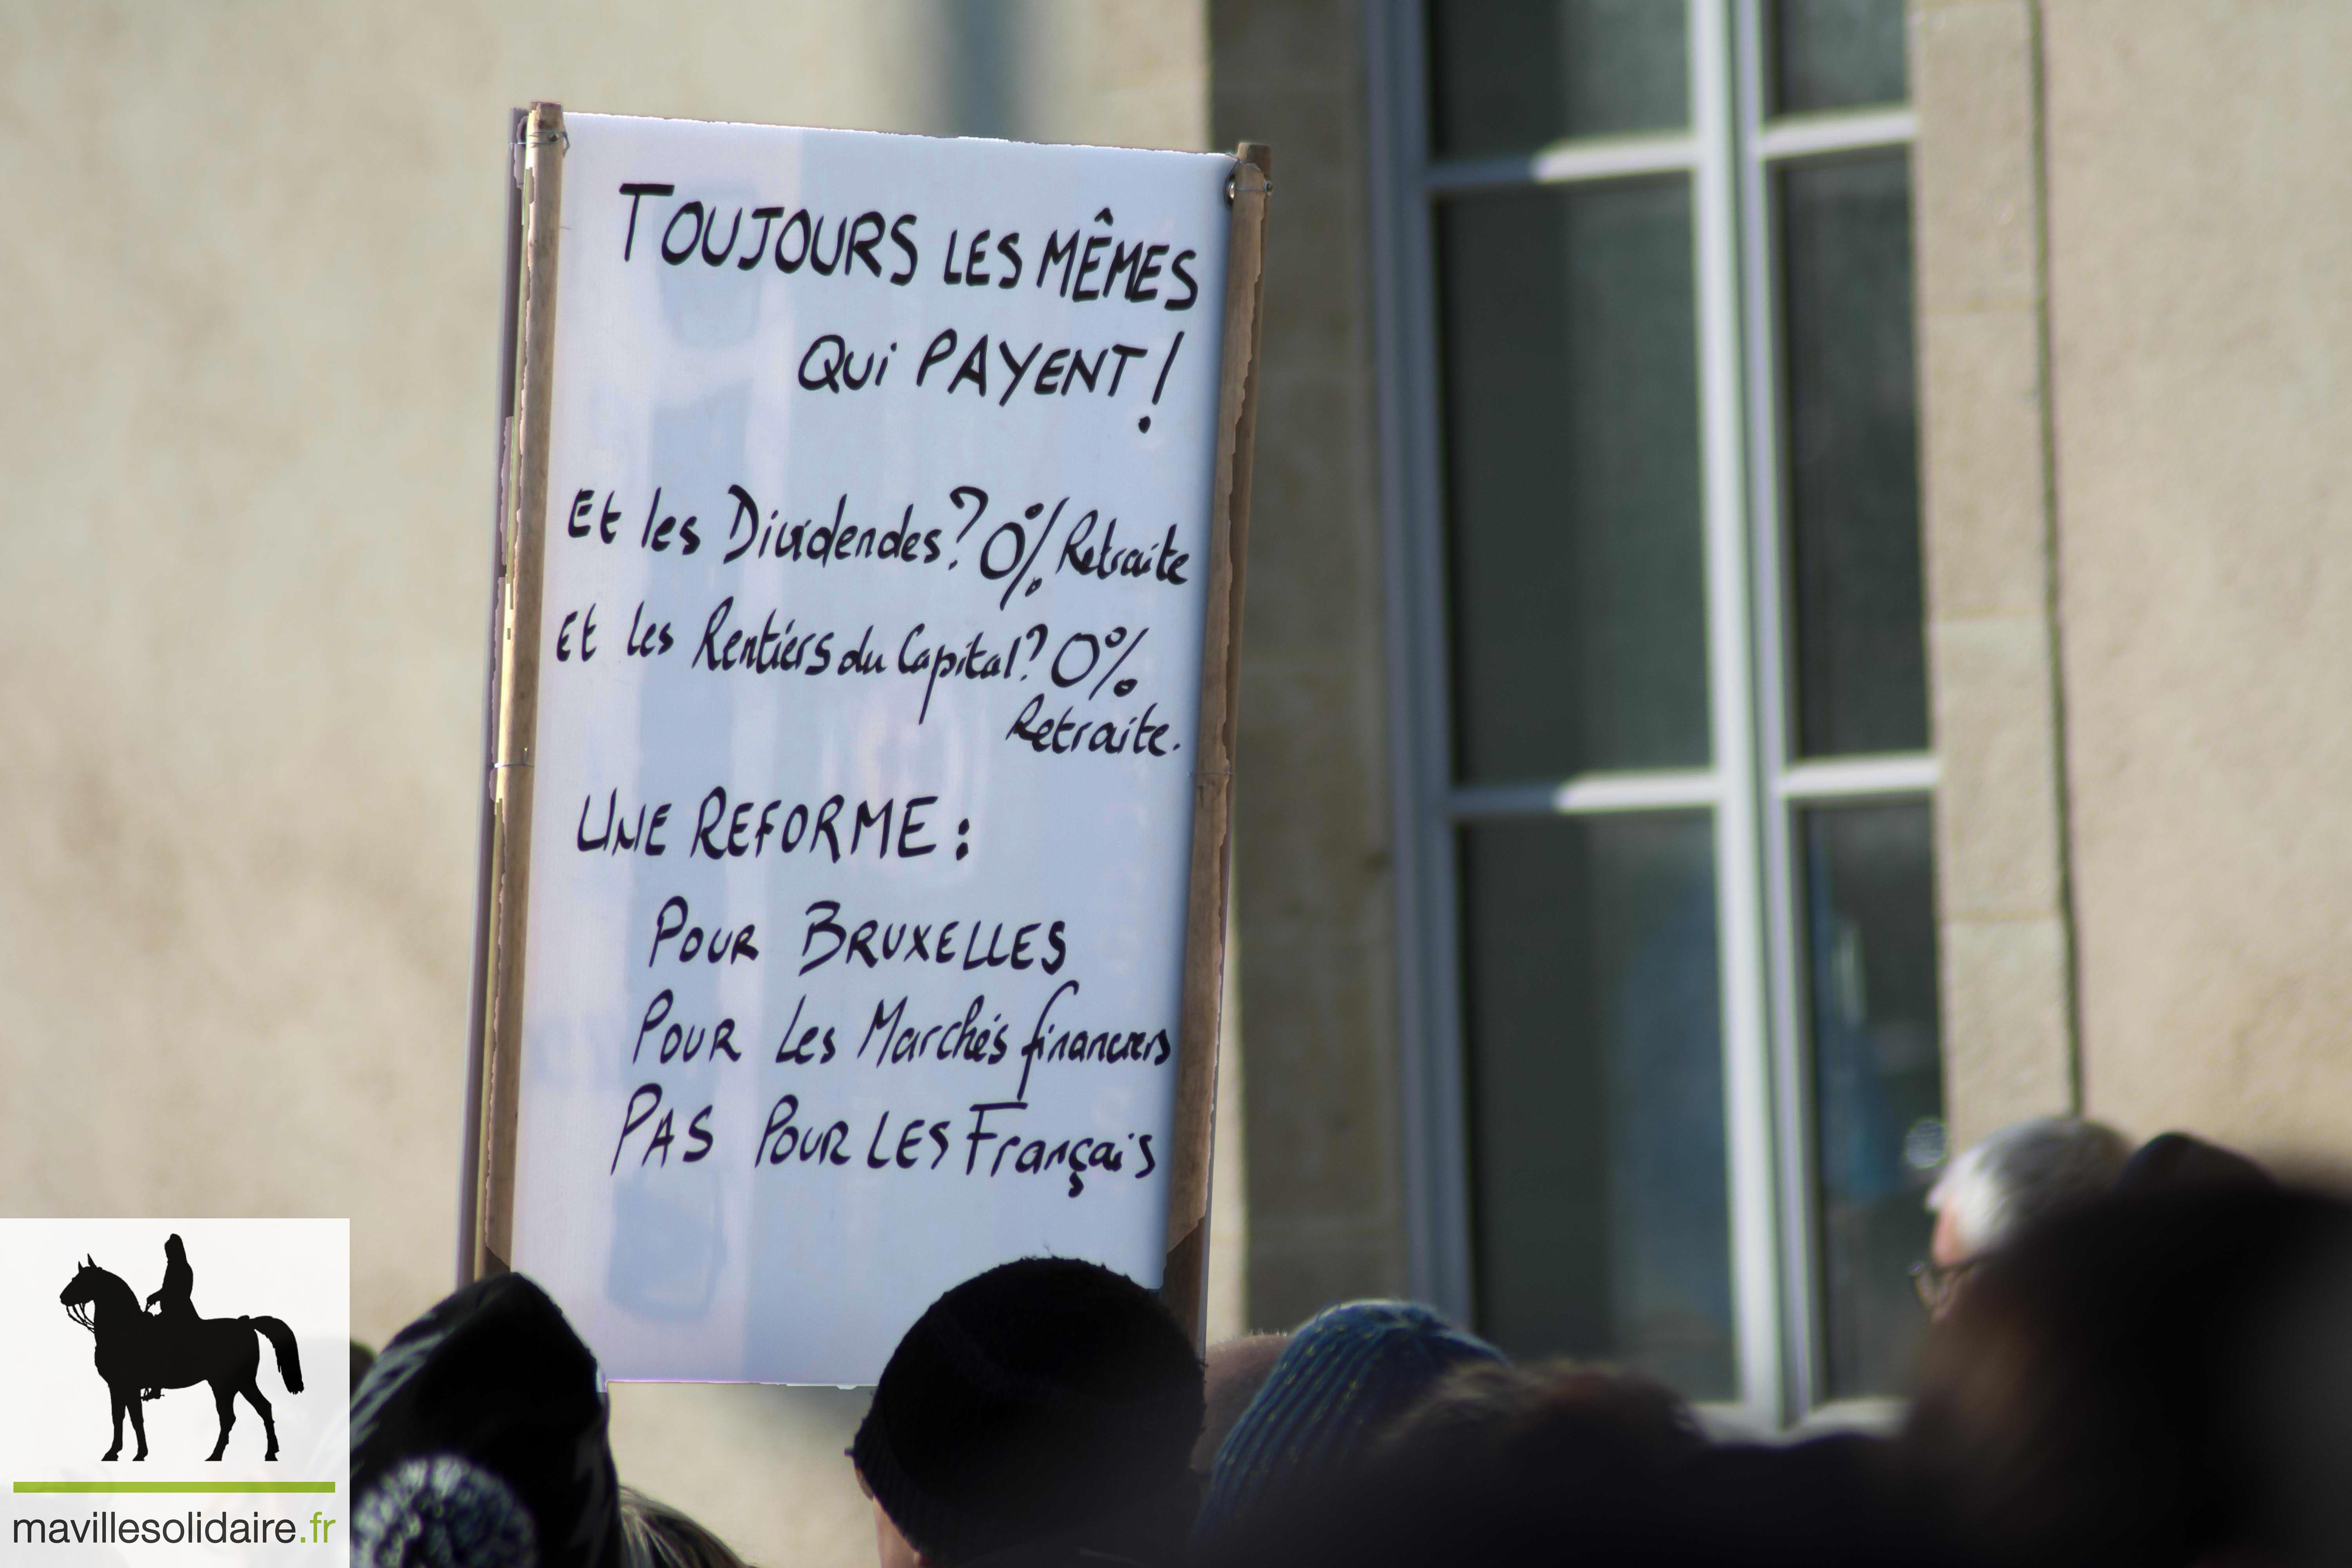 TOUJOURS LES MÊMES
QUi PAYENT !
Et les Dividendes ? 0% Retraite
Et les Rentiers du Capital ? 0%
Retraite.
UNE REFORME :
POUR BRUXELLES
POUR Les Marchés financiers
PAS POUR LES Français
mavillesolidaire.fr